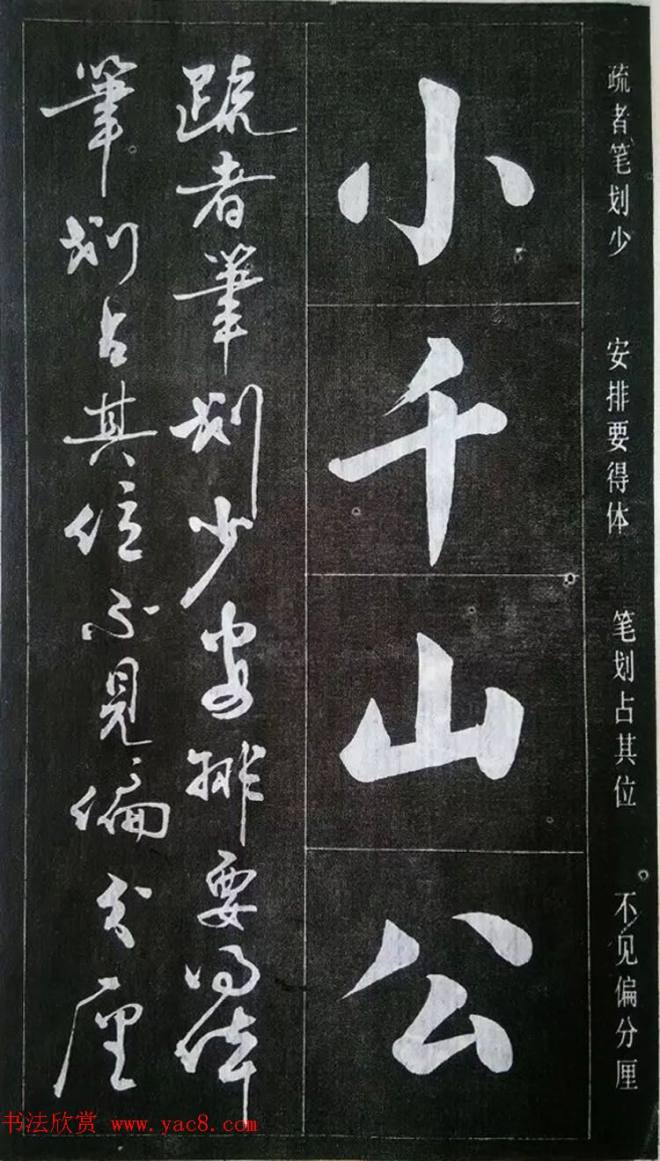 疏者笔划少 安排要得体 笔划占其位 不见偏分厘
小千山公
疏者筆划少安排要得体
筆划占其位不見偏分厘
书法欣赏 www.yac8.com